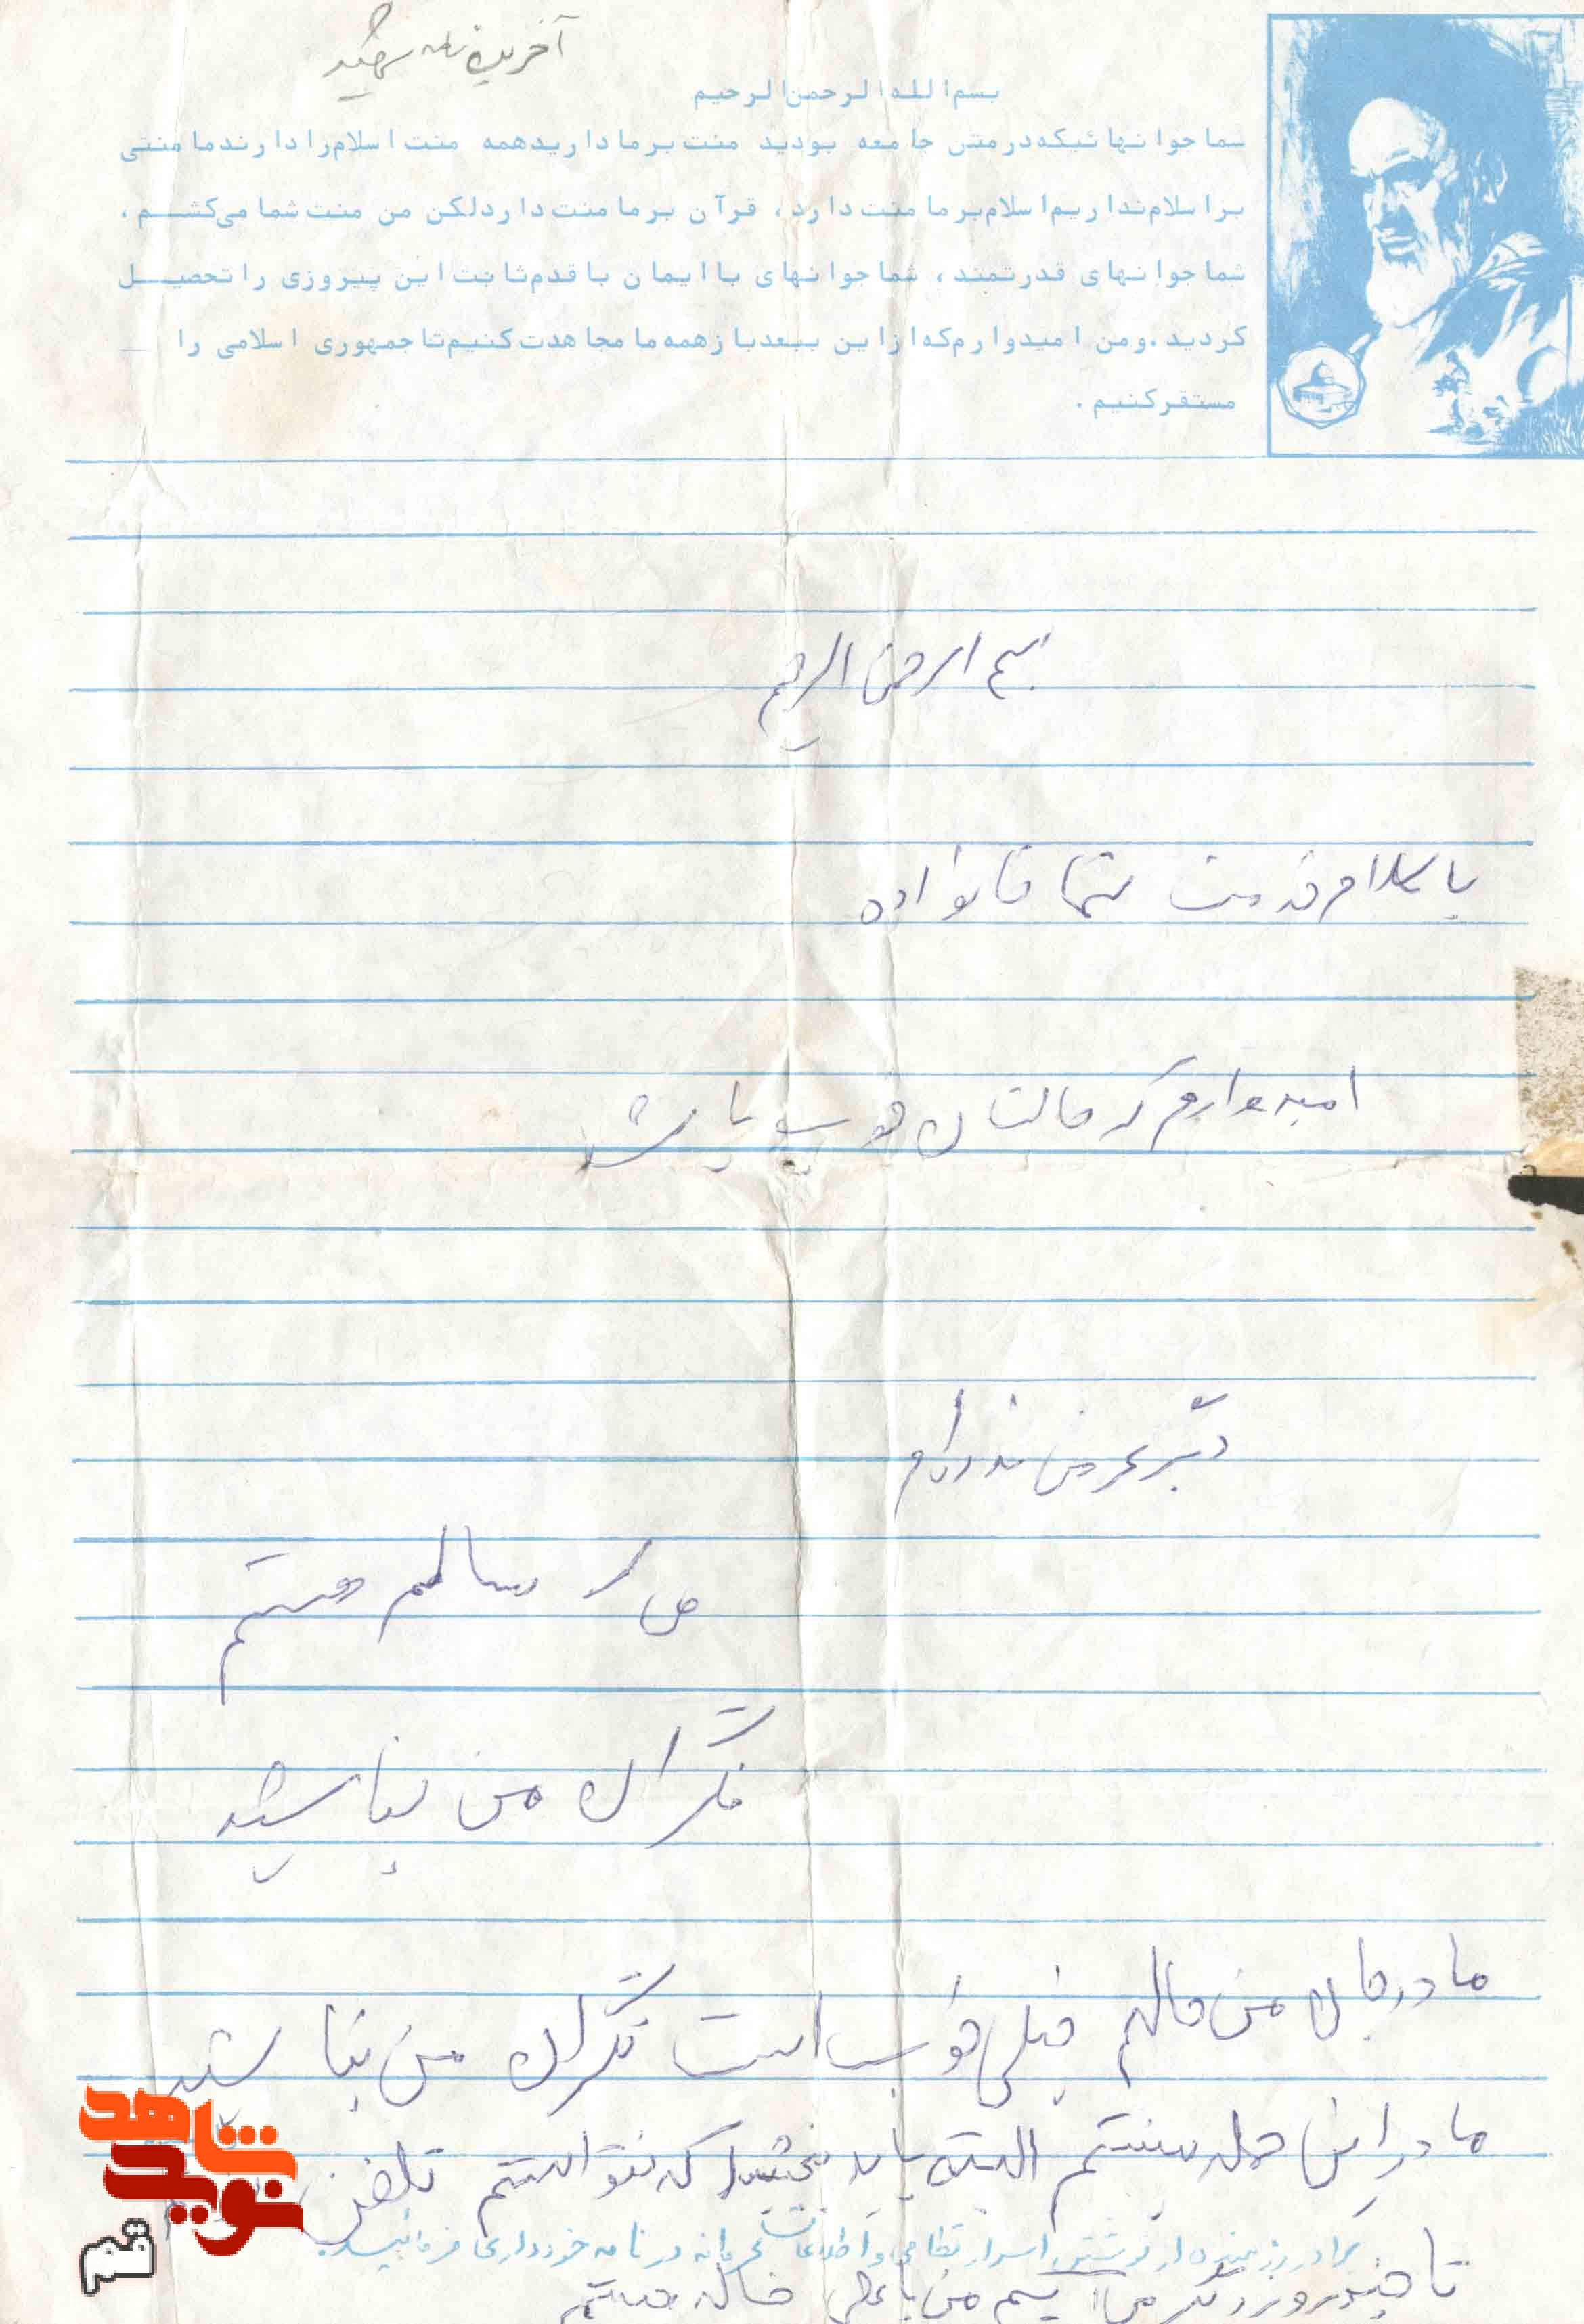 آخرین نامه شهید
بسم الله الرحمن الرحیم
شما جوانهائیکه در متن جامعه بودید منت بر ما دارید همه منت اسلام را دارند ما منتی
بر اسلام نداریم اسلام بر ما منت دارد، قرآن بر ما منت دارد لکن من منت شما می‌کشم،
شما جوانهای قدرتمند، شما جوانهای با ایمان با قدم ثابت این پیروزی را تحصیل
کردید. و من امیدوارم که از این ببعد باز همه ما مجاهدت کنیم تا جمهوری اسلامی را
مستقر کنیم.
بسم الرحمن الرحیم
با سلام خدمت شما خانواده
امیدوارم که حالتان خوب باشد
دیگر عرض ندارم
من سالم هستم
نگران من نباشید
مادر جان من حالم خیلی خوب است نگران من نباشید
مادر این حمله نیستم البته باید ببخشید که نتوانستم تلفن
برادر رزمنده از نوشتن اسرار نظامی و اطلاعات محرمانه در نامه خودداری فرمائید.
تا چند روز دیگر می‌آییم من با علی خاله هستم
شاهد
نوید
قم